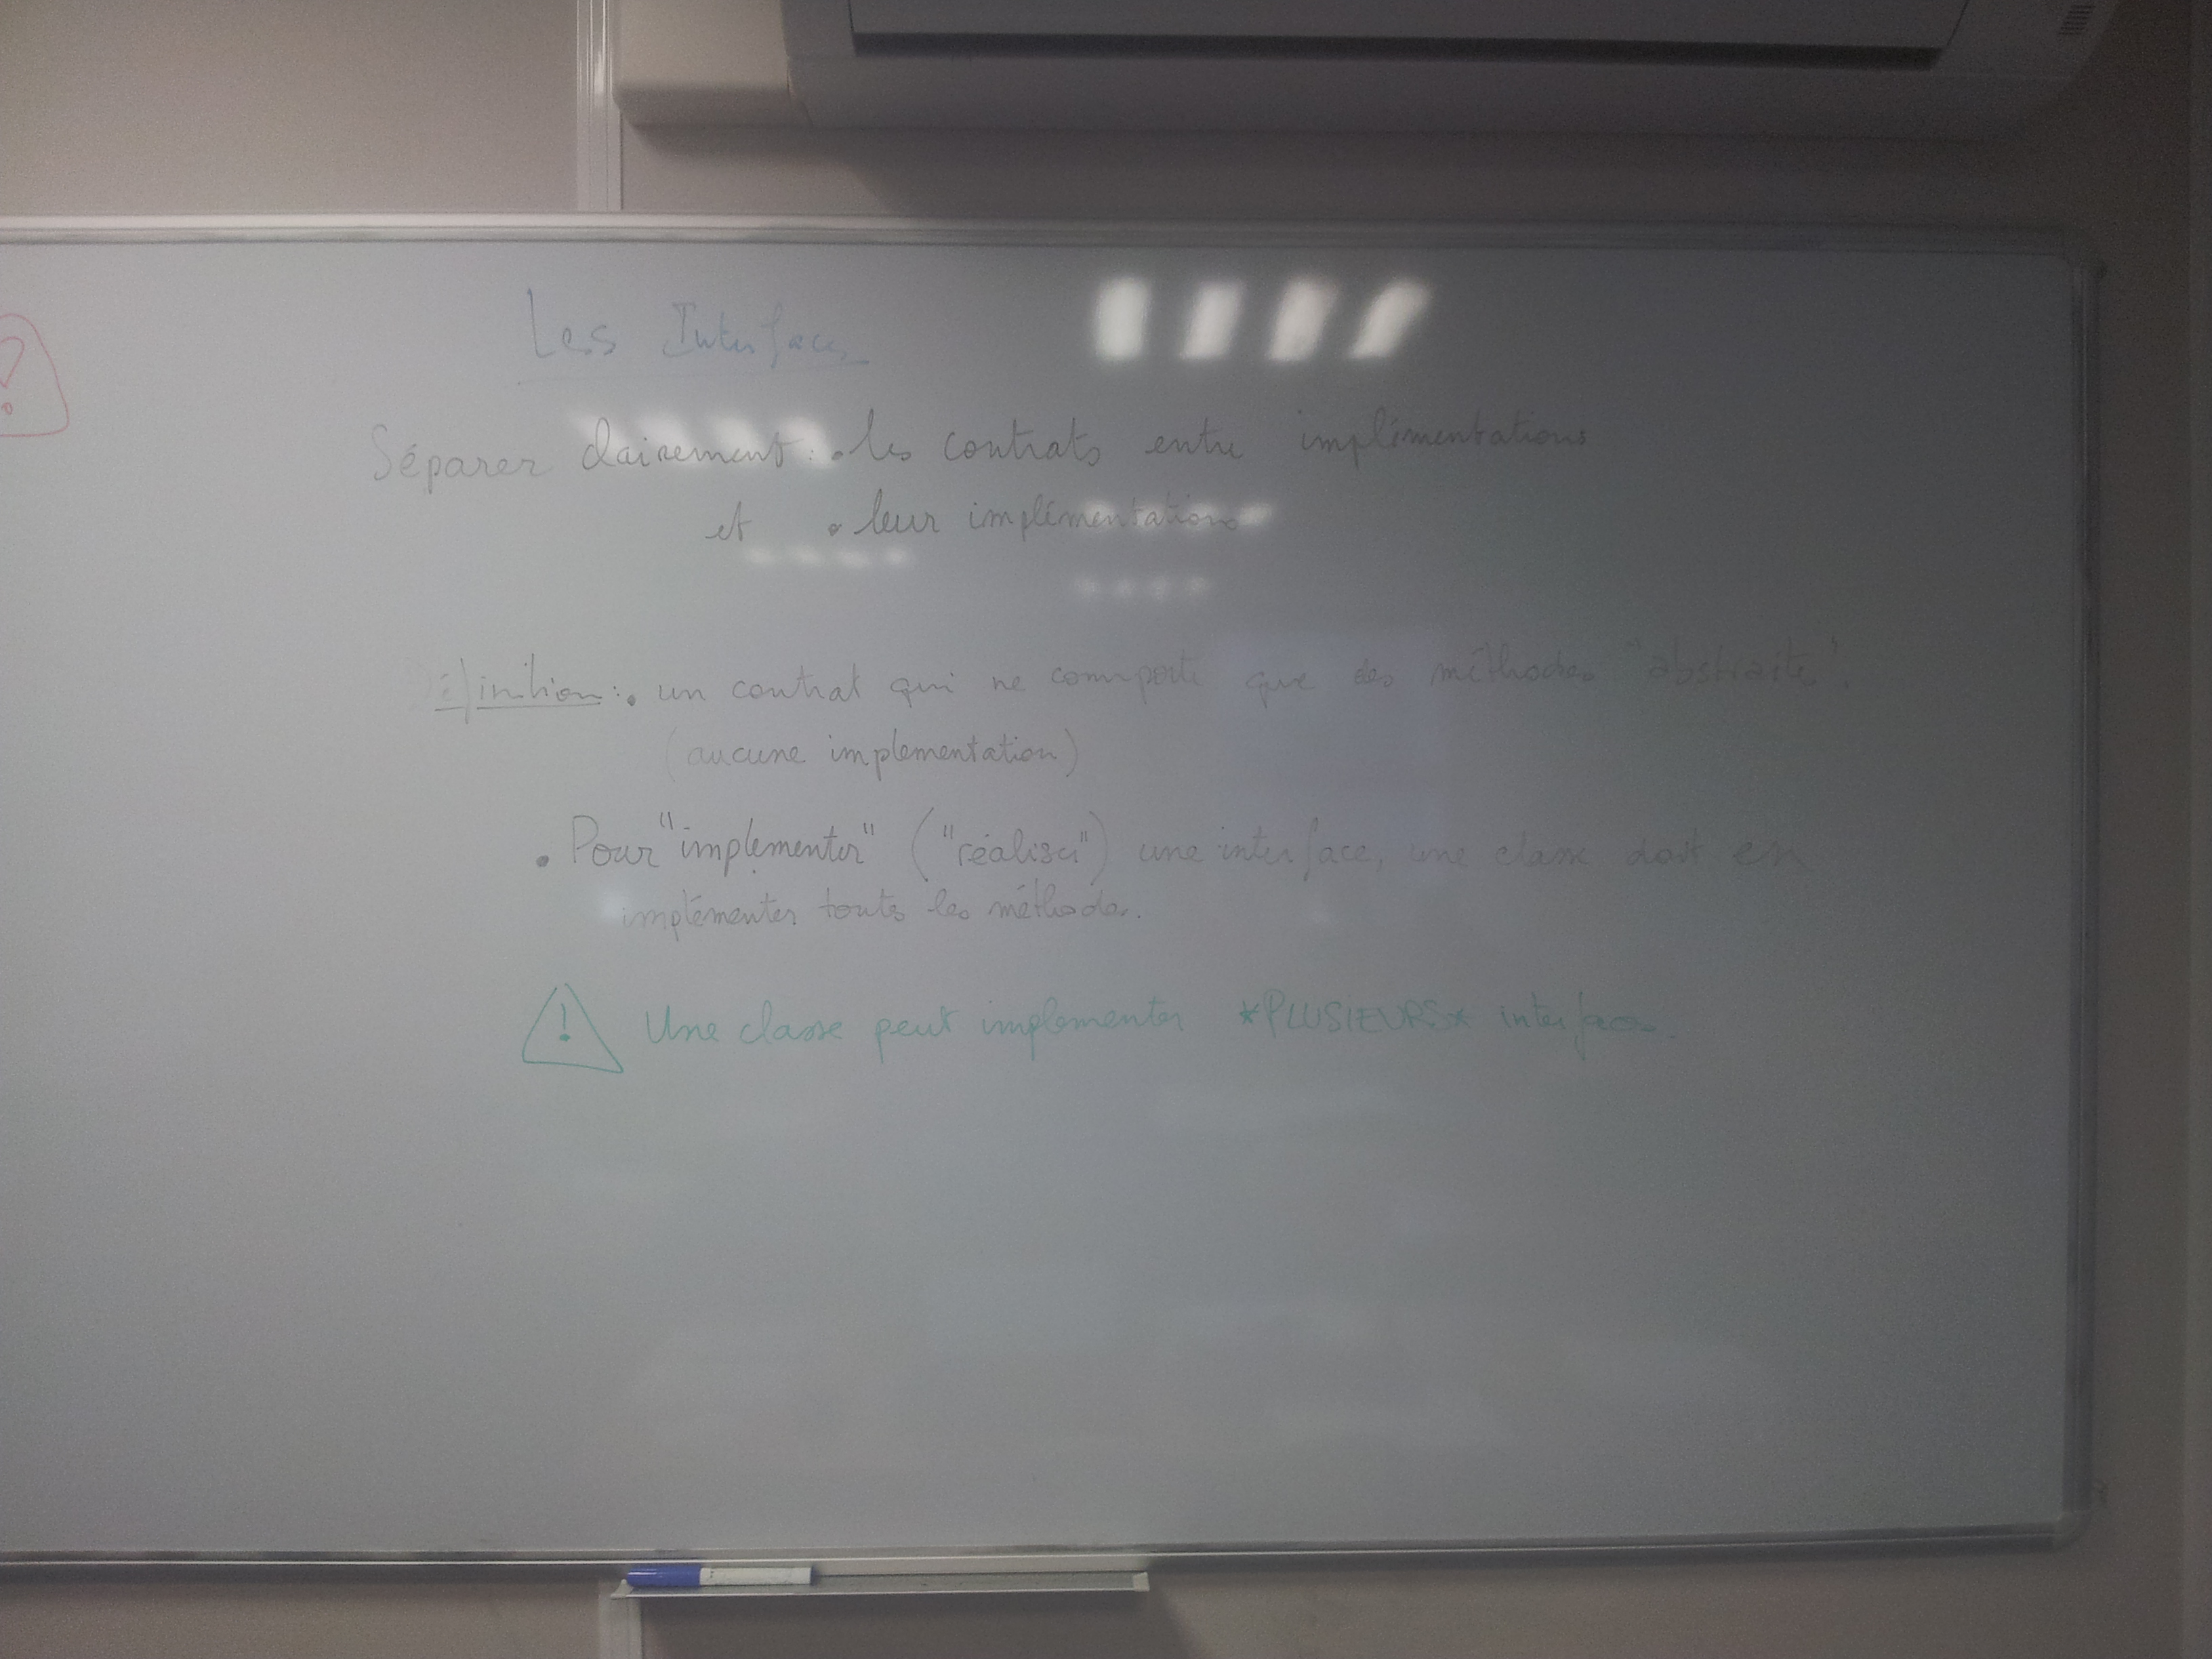 Les Interfaces
?
Séparer clairement : • les contrats entre implémentations
et • leur implémentations
Définition : • un contrat qui ne comporte que des méthodes "abstraite".
(aucune implementation)
• Pour "implementer" ("réaliser") une interface, une classe doit en
implémenter toutes les méthodes.
! Une classe peut implementer *PLUSIEURS* interfaces.